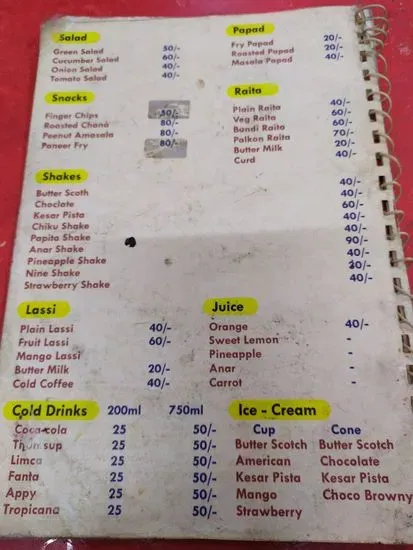 Salad
Green Salad 50/-
Cucumber Salad 60/-
Onion Salad 40/-
Tomato Salad 40/-
Papad
Fry Papad 20/-
Roasted Papad 20/-
Masala Papad 40/-
Snacks
Finger Chips 50/-
Roasted Chana 80/-
Peenut Amosala 80/-
Paneer Fry 80/-
Raita
Plain Raita 40/-
Veg Raita 60/-
Bundi Raita 60/-
Palkon Raita 70/-
Butter Milk 20/-
Curd 40/-
Shakes
Butter Scoth 40/-
Choclate 40/-
Kesar Pista 60/-
Chiku Shake 40/-
Papita Shake 40/-
Anar Shake 90/-
Pineapple Shake 40/-
Nine Shake
Strawberry Shake 40/-
Lassi
Plain Lassi 40/-
Fruit Lassi 60/-
Mango Lassi
Butter Milk 20/-
Cold Coffee 40/-
Juice
Orange 40/-
Sweet Lemon -
Pineapple -
Anar -
Carrot -
Cold Drinks 200ml 750ml
Coca-cola 25 50/-
Thumsup 25 50/-
Limca 25 50/-
Fanta 25 50/-
Appy 25 50/-
Tropicana 25 50/-
Ice - Cream
Cup Cone
Butter Scotch Butter Scotch
American Chocolate
Kesar Pista Kesar Pista
Mango Choco Browny
Strawberry